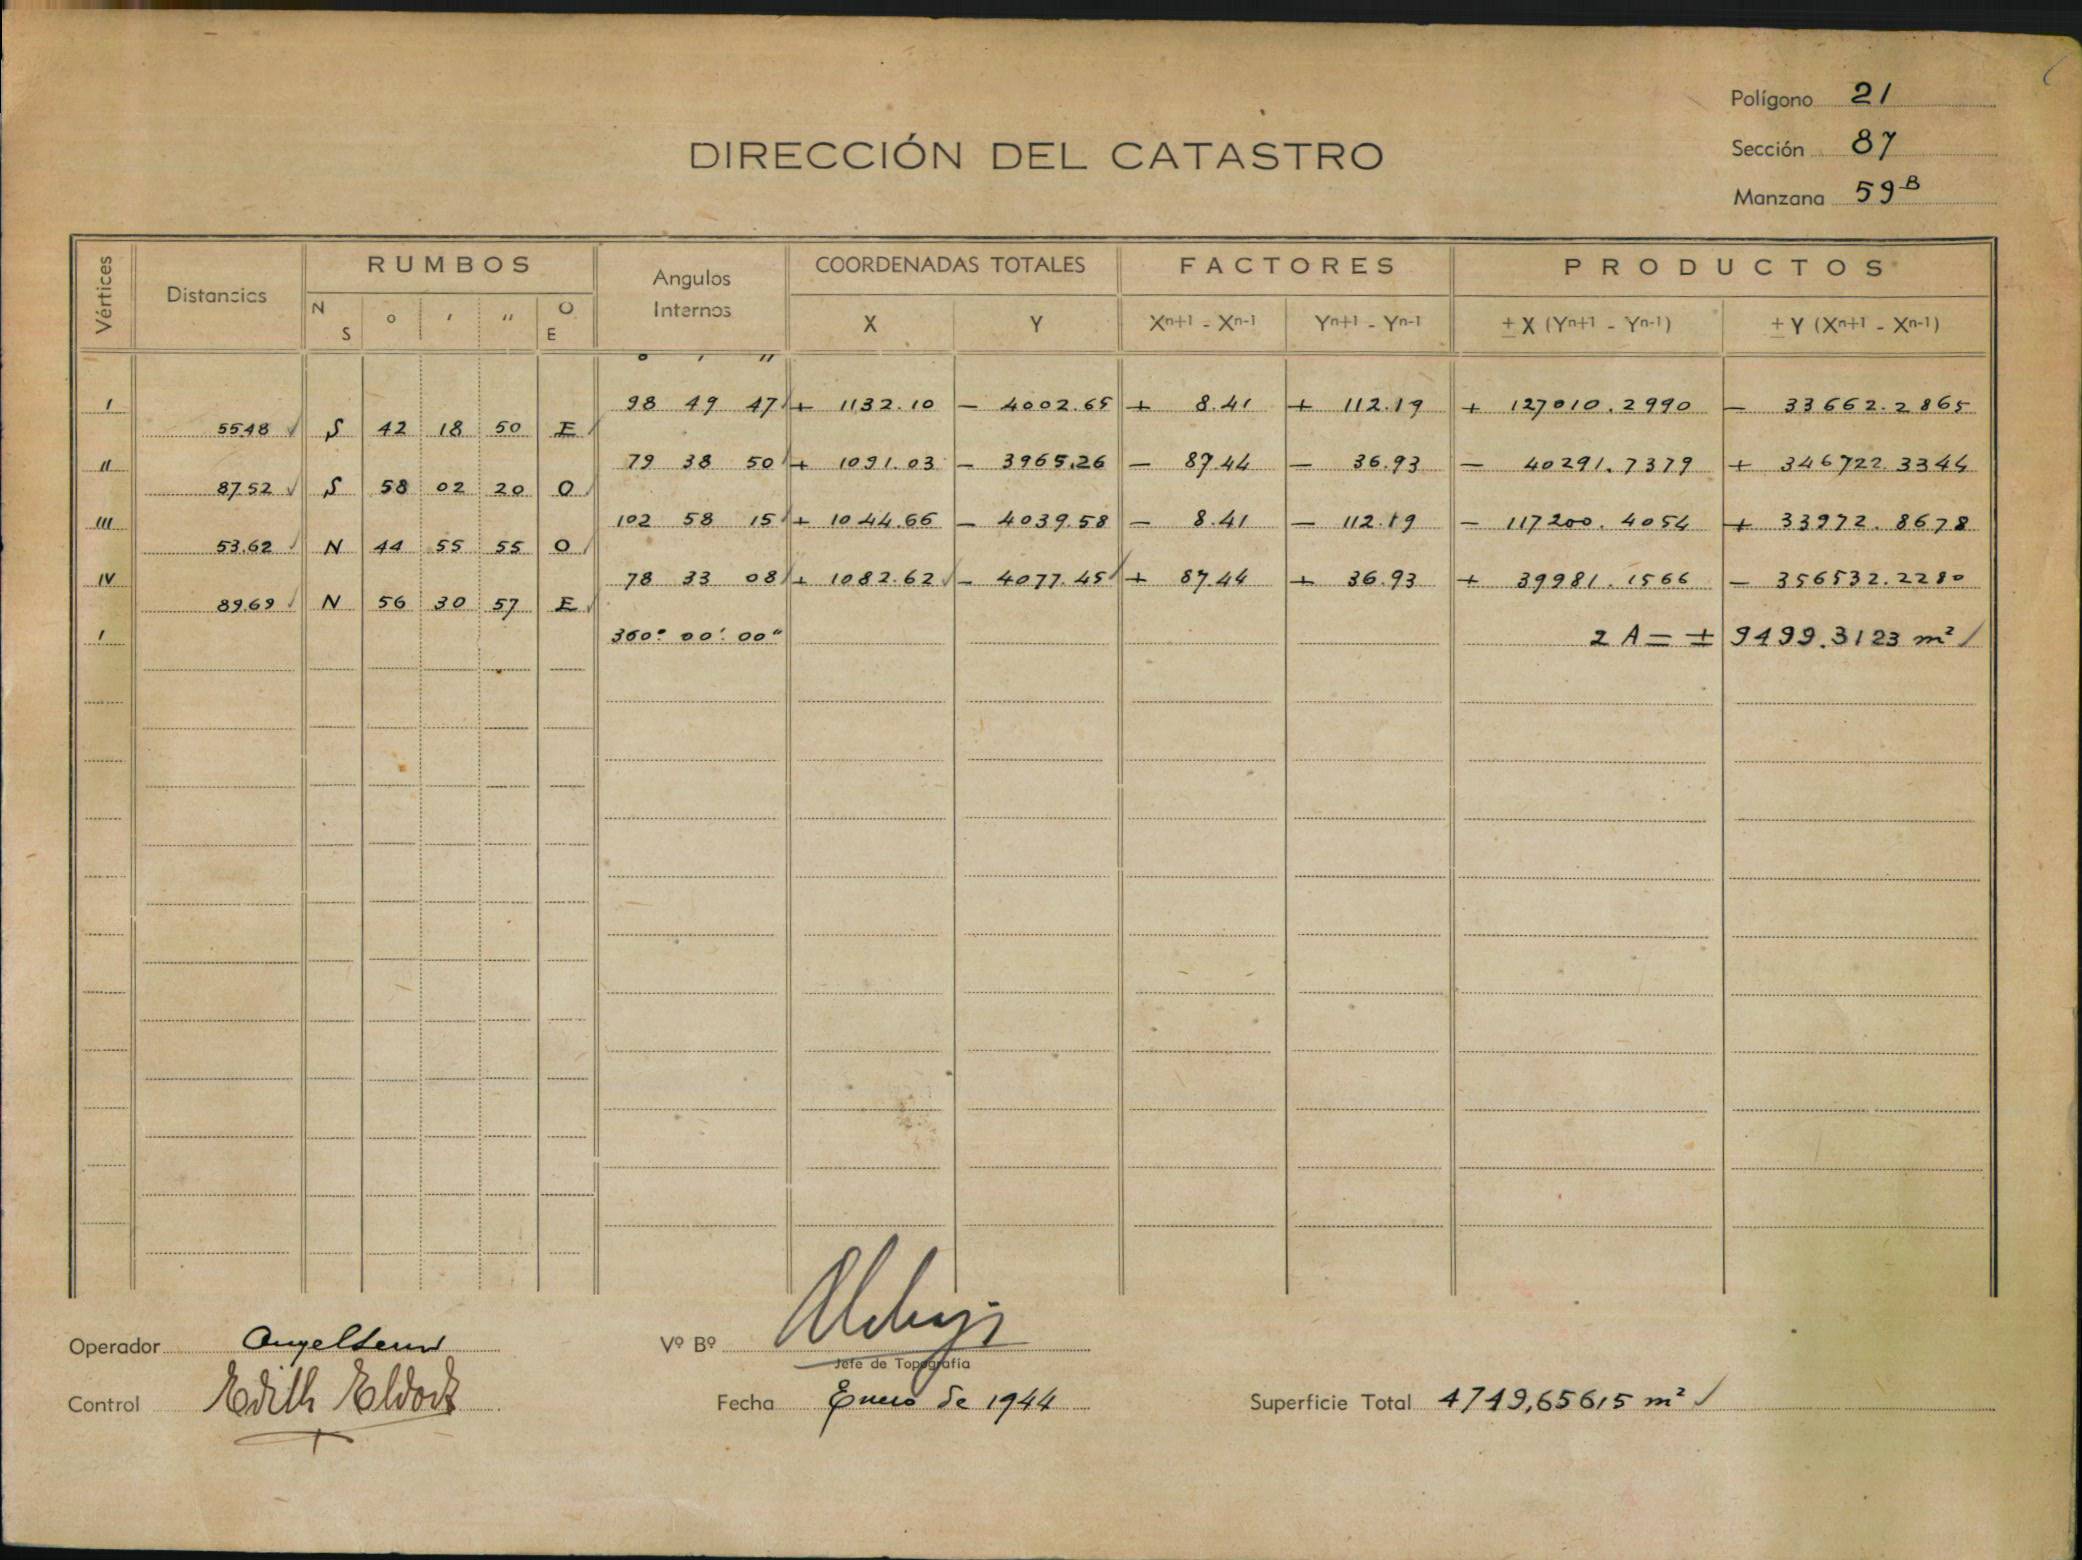 Polígono 21
DIRECCIÓN DEL CATASTRO
Sección 87
Manzana 59-B
Vértices Distancias RUMBOS Angulos Internos COORDENADAS TOTALES FACTORES PRODUCTOS
N S ° ' " O E X Y Xn+1 - Xn-1 Yn+1 - Yn-1 ± X (Yn+1 - Yn-1) ± Y (Xn+1 - Xn-1)
° ' "
I 98 49 47 + 1132.10 - 4002.65 + 8.41 + 112.19 + 127010.2990 - 33662.2865
55.48 S 42 18 50 E
II 79 38 50 + 1091.03 - 3965.26 - 87.44 - 36.93 - 40291.7379 + 346722.3344
87.52 S 58 02 20 O
III 102 58 15 + 1044.66 - 4039.58 - 8.41 - 112.19 - 117200.4054 + 33972.8678
53.62 N 44 55 55 O
IV 78 33 08 + 1082.62 - 4077.45 + 87.44 + 36.93 + 39981.1566 - 356532.2280
89.69 N 56 30 57 E
I 360° 00' 00" 2 A = ± 9499.3123 m²
Operador
Vº Bº
Jefe de Topografía
Control Edith
Fecha Enero de 1944
Superficie Total 4749,65615 m²